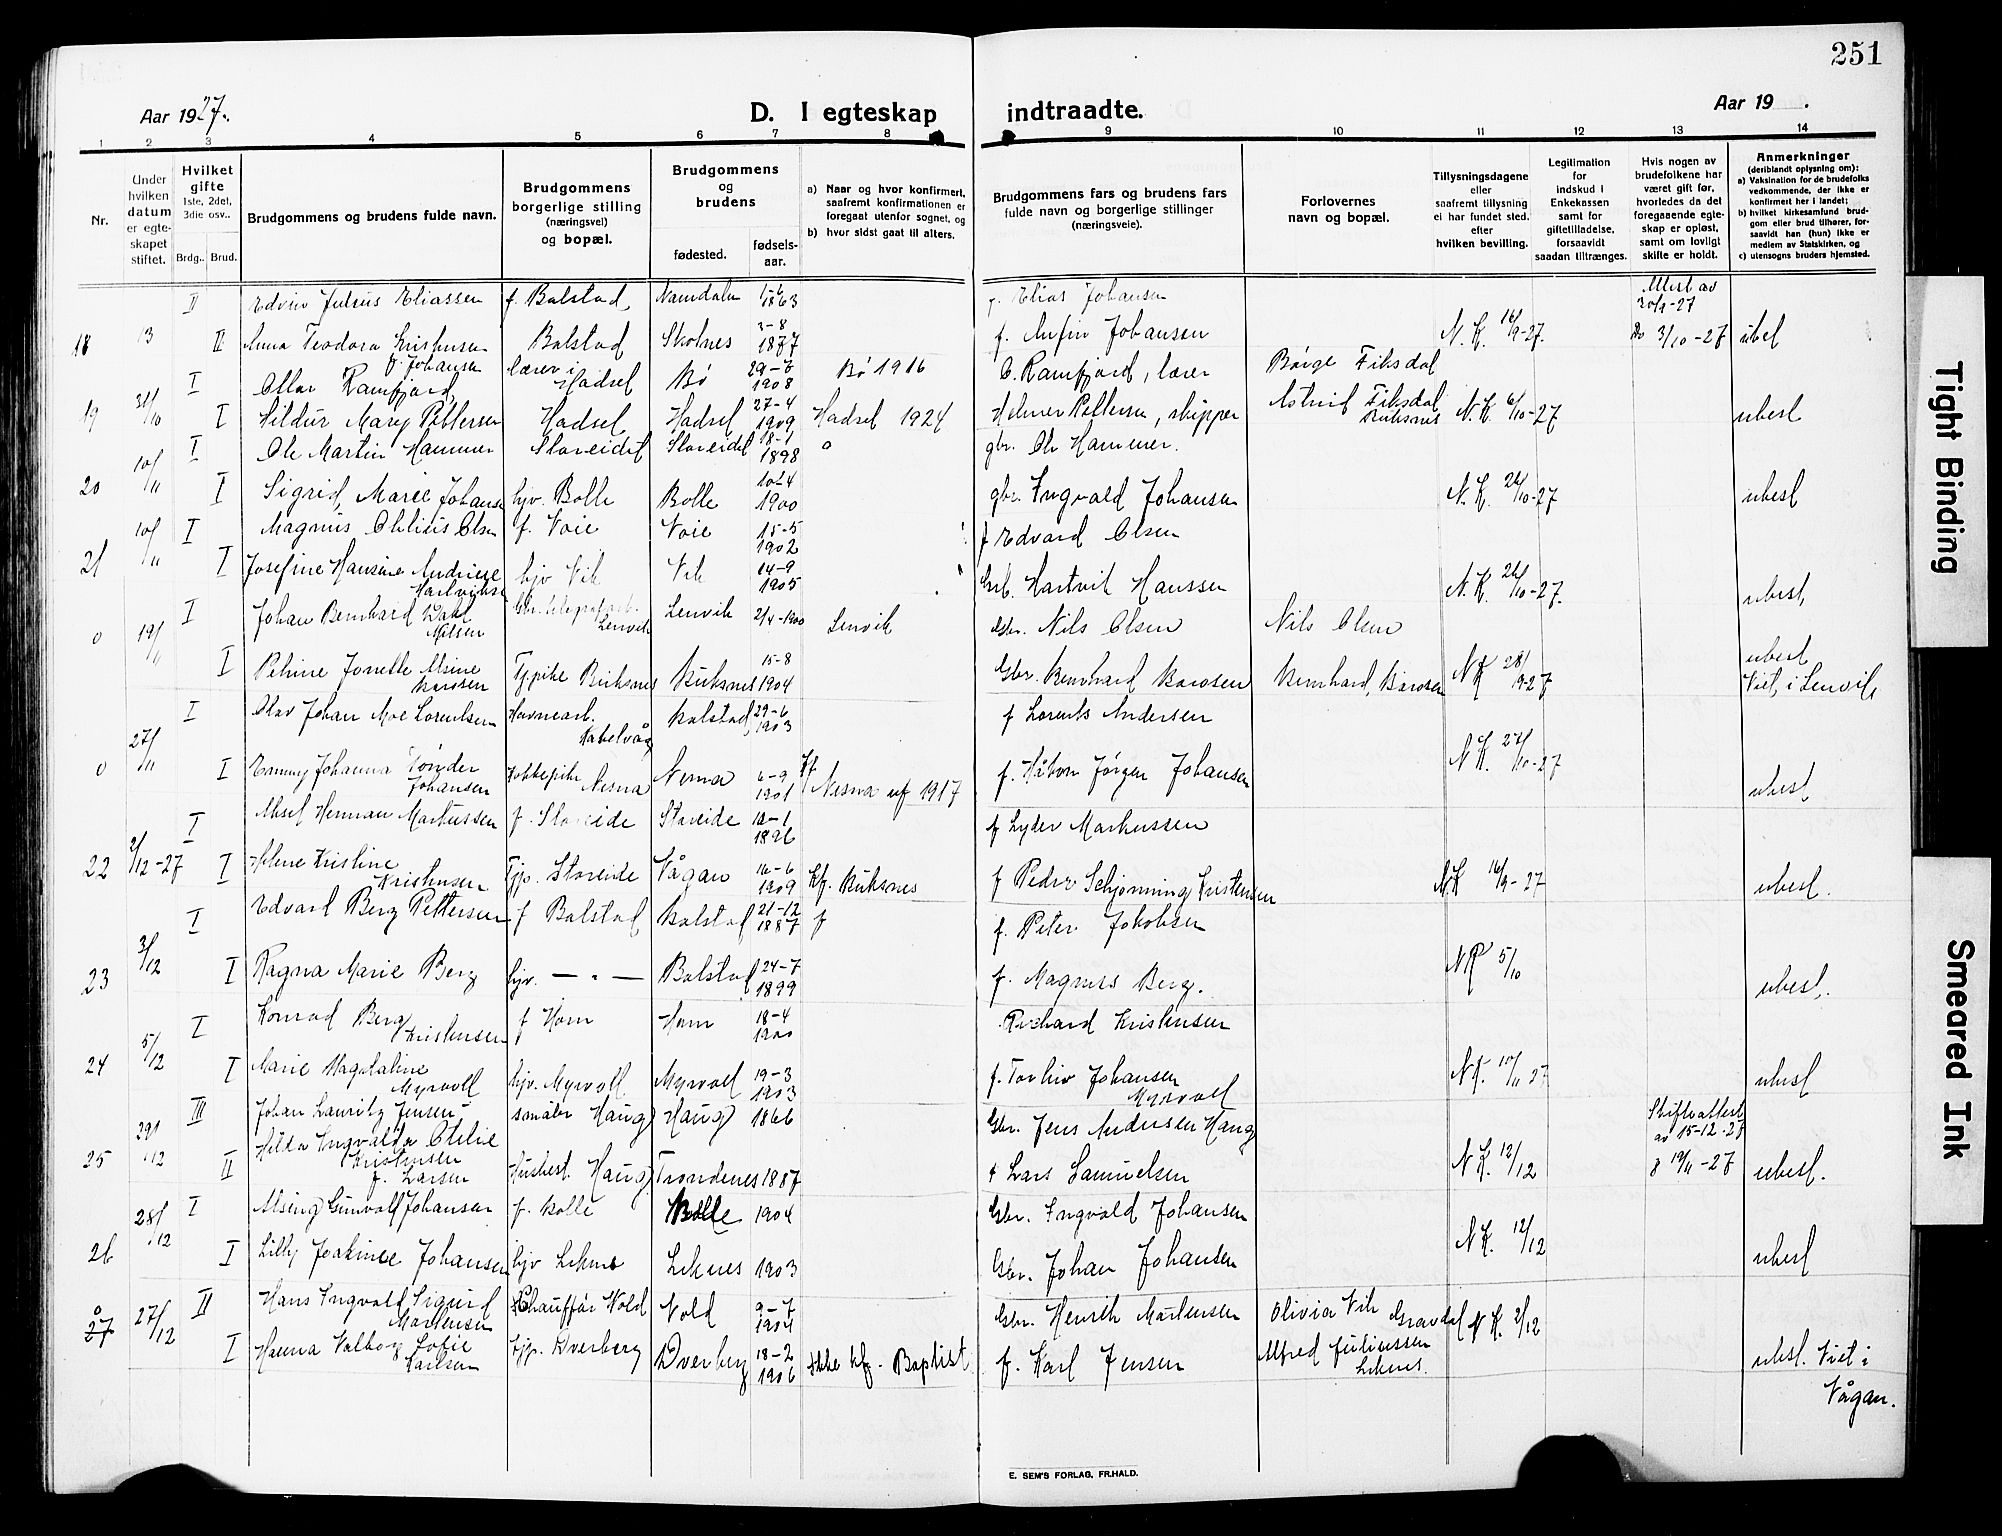 251
Aar 1927.
D. I egteskap indtraadte.
Aar 19 .
1 2 3 4 5 6 7 8 9 10 11 12 13 14
Nr.
Under hvilken datum er egteskapet stiftet.
Hvilket gifte
1ste, 2det, 3die osv..
Brdg.. Brud.
Brudgommens og brudens fulde navn.
Brudgommens borgerlige stilling (næringsvei) og bopæl.
Brudgommens og brudens
fødested. fødselsaar.
a) Naar og hvor konfirmert, saafremt konfirmationen er foregaat utenfor sognet, og
b) hvor sidst gaat til alters.
Brudgommens fars og brudens fars fulde navn og borgerlige stillinger (næringsveie).
Forlovernes navn og bopæl.
Tillysningsdagene eller saafremt tillysning ei har fundet sted. efter hvilken bevilling.
Legitimation for indskud i Enkekassen samt for giftetilladelse, forsaavidt saadan tiltrænges.
Hvis nogen av brudefolkene har været gift før, hvorledes da det foregaaende egteskap er opløst, samt om lovligt skifte er holdt.
Anmerkninger
(deriblandt oplysning om):
a) Vaksination for de brudefolks vedkommende, der ikke er konfirmert her i landet;
b) hvilket kirkesamfund brudgom eller brud tilhører, forsaavidt han (hun) ikke er medlem av Statskirken, og
c) utensogns bruders hjemsted.
II Edvin Julius Eliassen f. Balstad, Namdalen 1-6 1863 f. Elias Johansen Attest av 30/9-27
18 13 II Anna Teodora Kristensen f. Johansen Balstad Skotnes 3-8 1877 f. Anfin Johansen N. K. 14/9-27. 3/10-27 ubesl
I Ottar Ramfjord, lærer i Hadsel Bø 29-7 1908 Bø 1916 O. Ramfjord, lærer Børge Fiksdal
19 31/10 I Hildur Mary Pettersen Hadsel Hadsel 27-4 1909 Hadsel 1924 Helmer Pettersen, skipper Astrid Fiksdal Buksnes N. K. 6/10-27 ubesl
I Ole Martin Hammer Storeidet Storeidet 18-1 1898 gbr. Ole Hammer.
20 10/11 I Sigrid Marie Johansen hjv. Bolle Bolle 10-4 1900 gbr. Ingvald Johansen N. K. 26/10-27 ubesl
10/11 I Magnus Olsen f. Voie Voie 15-5 1902 f Edvard Olsen
21 I Josefine Hansine Andriese Hartviksen hjv Vik Vik 14-9 1905 Grb. Hartvik Hanssen N. K. 26/10-27. ubesl,
0 19/11 I Johan Bernhard Dahl Nilsen Lenvik Lenvik 2/4-1900 Lenvik Gbr. Nils Olsen Nils Olsen
I Petrine Jonette Alsine Barosen Tj.pike Buksnes Buksnes 15-8 1904 Gbr. Bernhard Barosen Bernhard, Barosen N K 28/9-27 ubesl Viet, i Lenvik,
I Olav Johan Moe Lorentsen Havnearb. Kabelvåg Balstad, 29-6 1903 f Lorents Andersen
0 27/11 I Emmy Johanna Tønder Johansen Kokkepike Nesna Nesna 6-9 1901 Kf Nesna 1917 f. Håkon Jørgen Johansen N. K. 27/10-27 ubesl,
I Aksel Herman Markussen f. Storeide Storeide 12-1 1896 f Lyder Markussen
22 2/12-27 I Helene Kristine Kristensen Tjp. Storeide Vågan 16-6 1909 kf. Buksnes f Peder Schjønning Kristensen N. K 16/9-27 ubesl.
I Edvart Berg Pettersen f Balstad Balstad 21-12 1887 f f. Peter Jakobsen
23 3/12 I Ragna Marie Berg hjv. — " — Balstad 24-7 1899 f. Magnus Berg. N K 5/10 ubesl.
I Konrad Berg Kristensen f Horn Horn 18-4 1900 Richard Kristensen
24 5/12 I Marie Magdaline Myrvoll hjv. Myrvoll Myrvoll 19-3 1903 f. Torkiv Johansen Myrvoll N K. 10/11 27 ubesl
III Johan Lauritz Jensen småbr Haug Haug 1866 Gbr. Jens Andersen Haug Skifteattest av 15-12-27
25 29/12 II Hilda Ingvalda Otelie Kristensen f. Larsen Husbest. Haug Trondenes 1887 f Lars Samuelsen N K. 12/12 8 19/11-27 ubesl.
I Alsing Gunvald Johansen f. Bolle Bolle 1904 Gbr. Ingvald Johansen
26 28/12 I Lilly Joakinee Johansen hjv Leknes Leknes 1903 Gbr. Johan Johansen N K. 12/12 ubesl
II Hans Ingvald Sigurd Martensen Chauffør Vold Vold 9-7 1904 Gbr. Henrik Martensen Olivia Vik Gravdal
0 27 27/12 I Hanna Valborg Sofie Karlsen tjp. Dverberg Dverberg 18-2 1906 Ikke kf. Baptist f. Karl Jensen Alfred Juliussen Leknes. N K. 2/12 ubesl. Viet i Vågan.
E. SEM'S FORLAG, FR.HALD.
Tight Binding
Smeared Ink